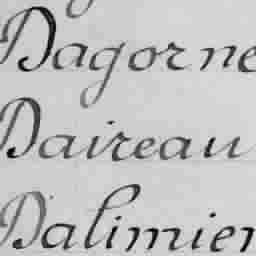 Dagorne
Daireau
Dalimier